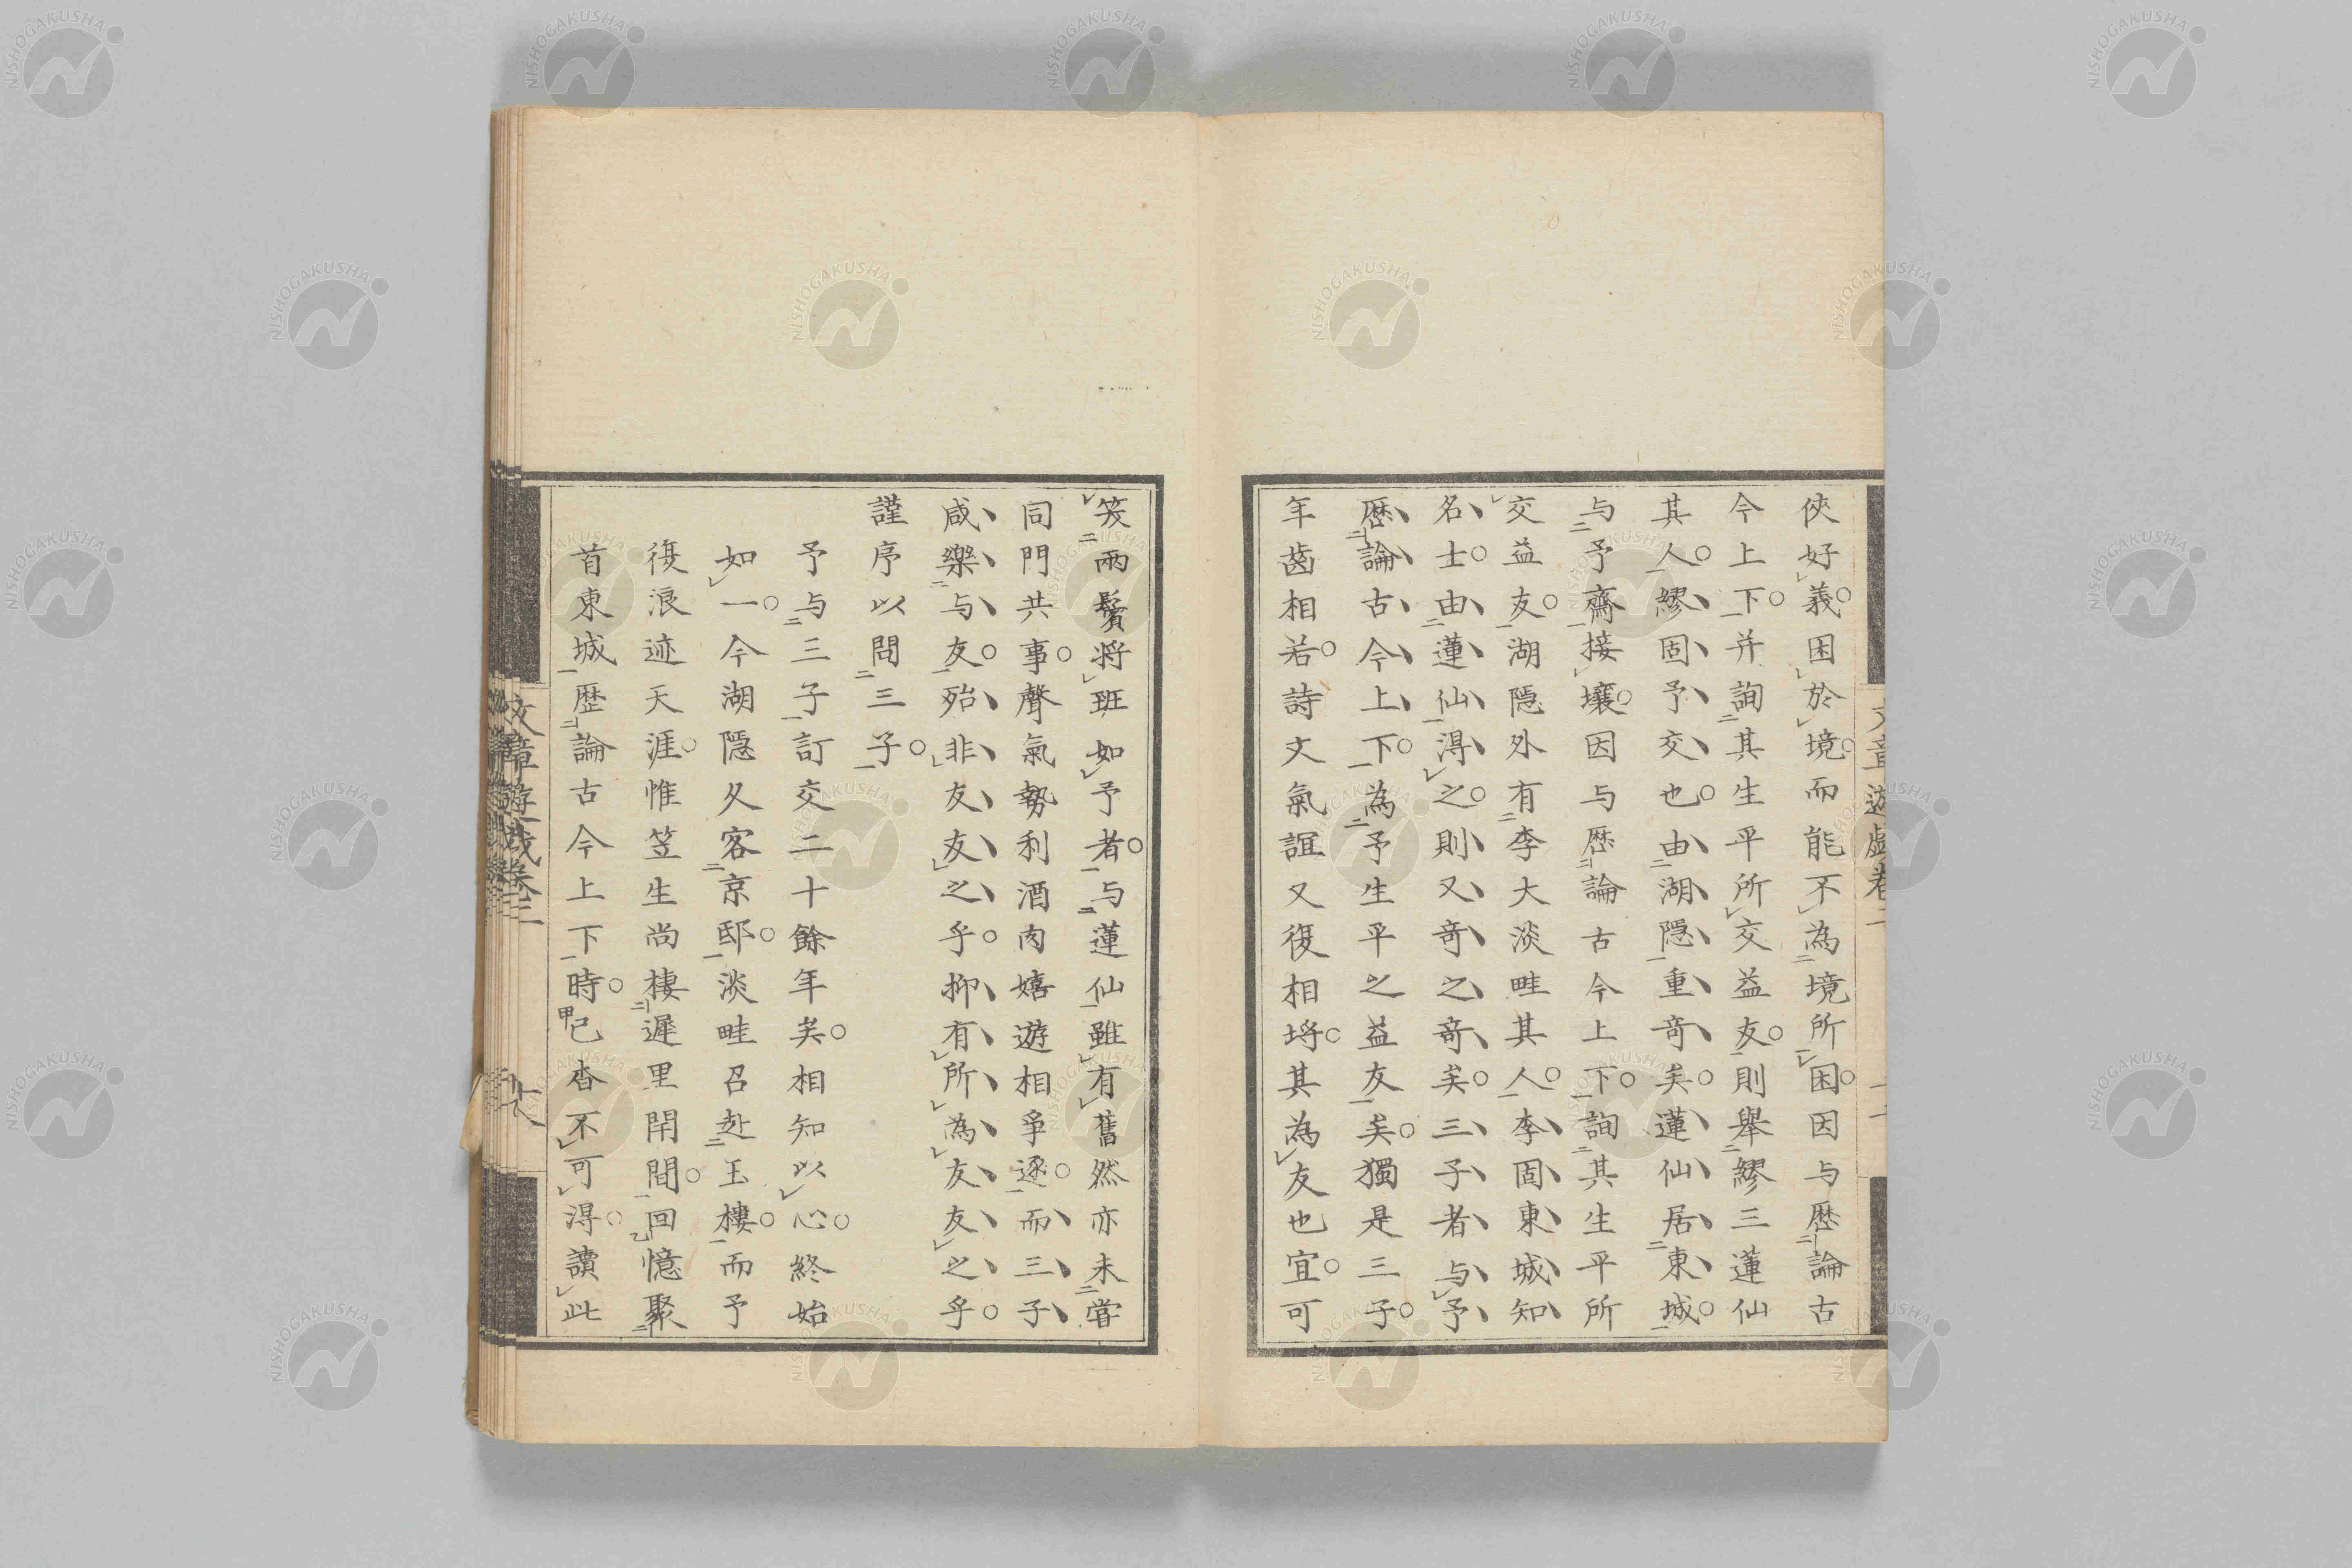 俠好義困於境而能不為境所困因与歴論古
今上下并詢其生平所交益友則舉繆三蓮仙
其人繆固予交也由湖隠重竒矣蓮仙居東城
与予齋接壤因与歴論古今上下詢其生平所
交益友湖隠外有李大淡畦其人李固東城知
名士由蓮仙淂之則又竒之竒矣三子者与予
歴論古今上下為予生平之益友矣獨是三子
年齒相若詩文氣誼又復相埒其為友也宜可
笑兩鬢将班如予者与蓮仙雖有舊然亦未嘗
同門共事聲氣勢利酒肉嬉遊相爭逐而三子
咸樂与友殆非友友之乎抑有所為友友之乎
謹序以問三子
予与三子訂交二十餘年矣相知以心終始
如一今湖隠久客京邸淡畦召赴玉樓而予
復浪迹天涯惟笠生尚棲遲里閈間回憶聚
首東城歴論古今上下時已杳不可淂讀此
文章遊戯卷二
NISHOGAKUSHA